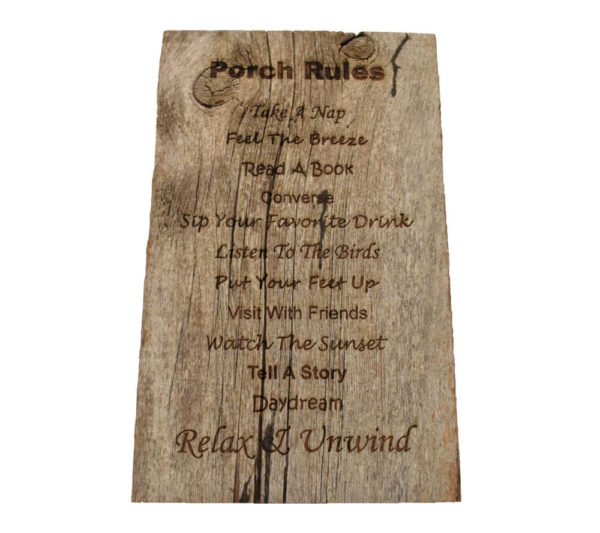 Porch Rules
Take A Nap
Feel The Breeze
Read A Book
Converse
Sip Your Favorite Drink
Listen To The Birds
Put Your Feet Up
Visit With Friends
Watch The Sunset
Tell A Story
Daydream
Relax & Unwind